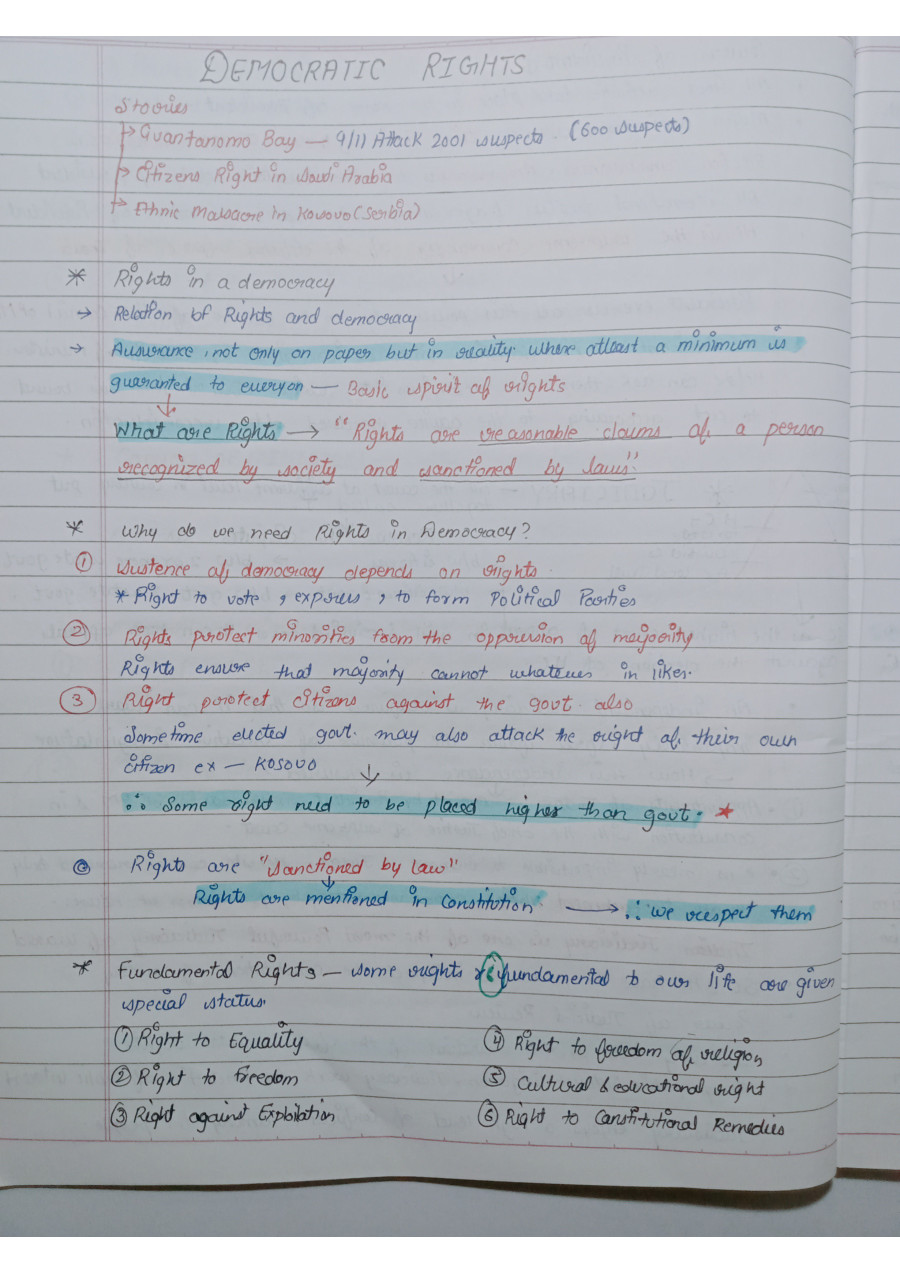 DEMOCRATIC RIGHTS
Stories
→ Guantanomo Bay — 9/11 Attack 2001 suspects. (600 suspects)
→ Citizens Right in Saudi Arabia
→ Ethnic Massacre in Kosovo (Serbia)
* Rights in a democracy
→ Relation of Rights and democracy
→ Assurance, not only on paper but in reality. where atleast a minimum is
guaranted to everyon — Basic spirit of rights
↓
What are Rights → "Rights are reasonable claims of a person
recognized by society and sanctioned by laws".
* Why do we need Rights in Democracy?
① Sustence of democracy depends on rights.
* Right to vote, express, to form Political Parties
② Rights protect minorities from the oppression of majority
Rights ensure that majority cannot whatever in likes.
③ Right protect citizens against the govt. also
Sometime elected govt. may also attack the right of their own
citizen ex — Kosovo
↓
∴ Some right need to be placed higher than govt. *
Rights are "sanctioned by law"
↓
Rights are mentioned in Constitution. → ∴ we respect them
* Fundamental Rights — some rights (6) fundamental to our life are given
special status.
① Right to Equality ④ Right to freedom of religion
② Right to Freedom ⑤ Cultural & educational right
③ Right against Exploitation ⑥ Right to Constitutional Remedies